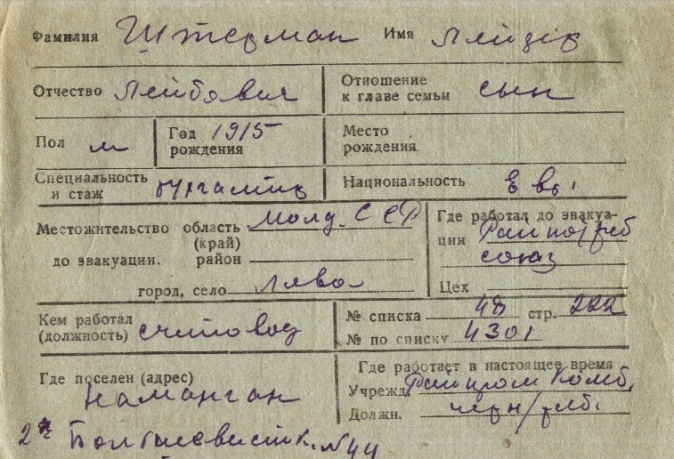 Фамилия Штерман Имя Лейзер
Отчество Лейбович Отношение к главе семьи сын
Пол м Год рождения 1915 Место рождения
Специальность и стаж бухгалтер Национальность Евр.
Местожительство область Молд. ССР
(край)
до эвакуации. район
город, село Лево
Где работал до эвакуа-
ции Райпотреб
союз
Цех
Кем работал (должность) счетовод
№ списка 48 стр. 222
№ по списку 4301
Где поселен (адрес)
Наманган
2ая Большевистк. №44
Где работает в настоящее время
Учрежд. Райпром Комб.
Должн.